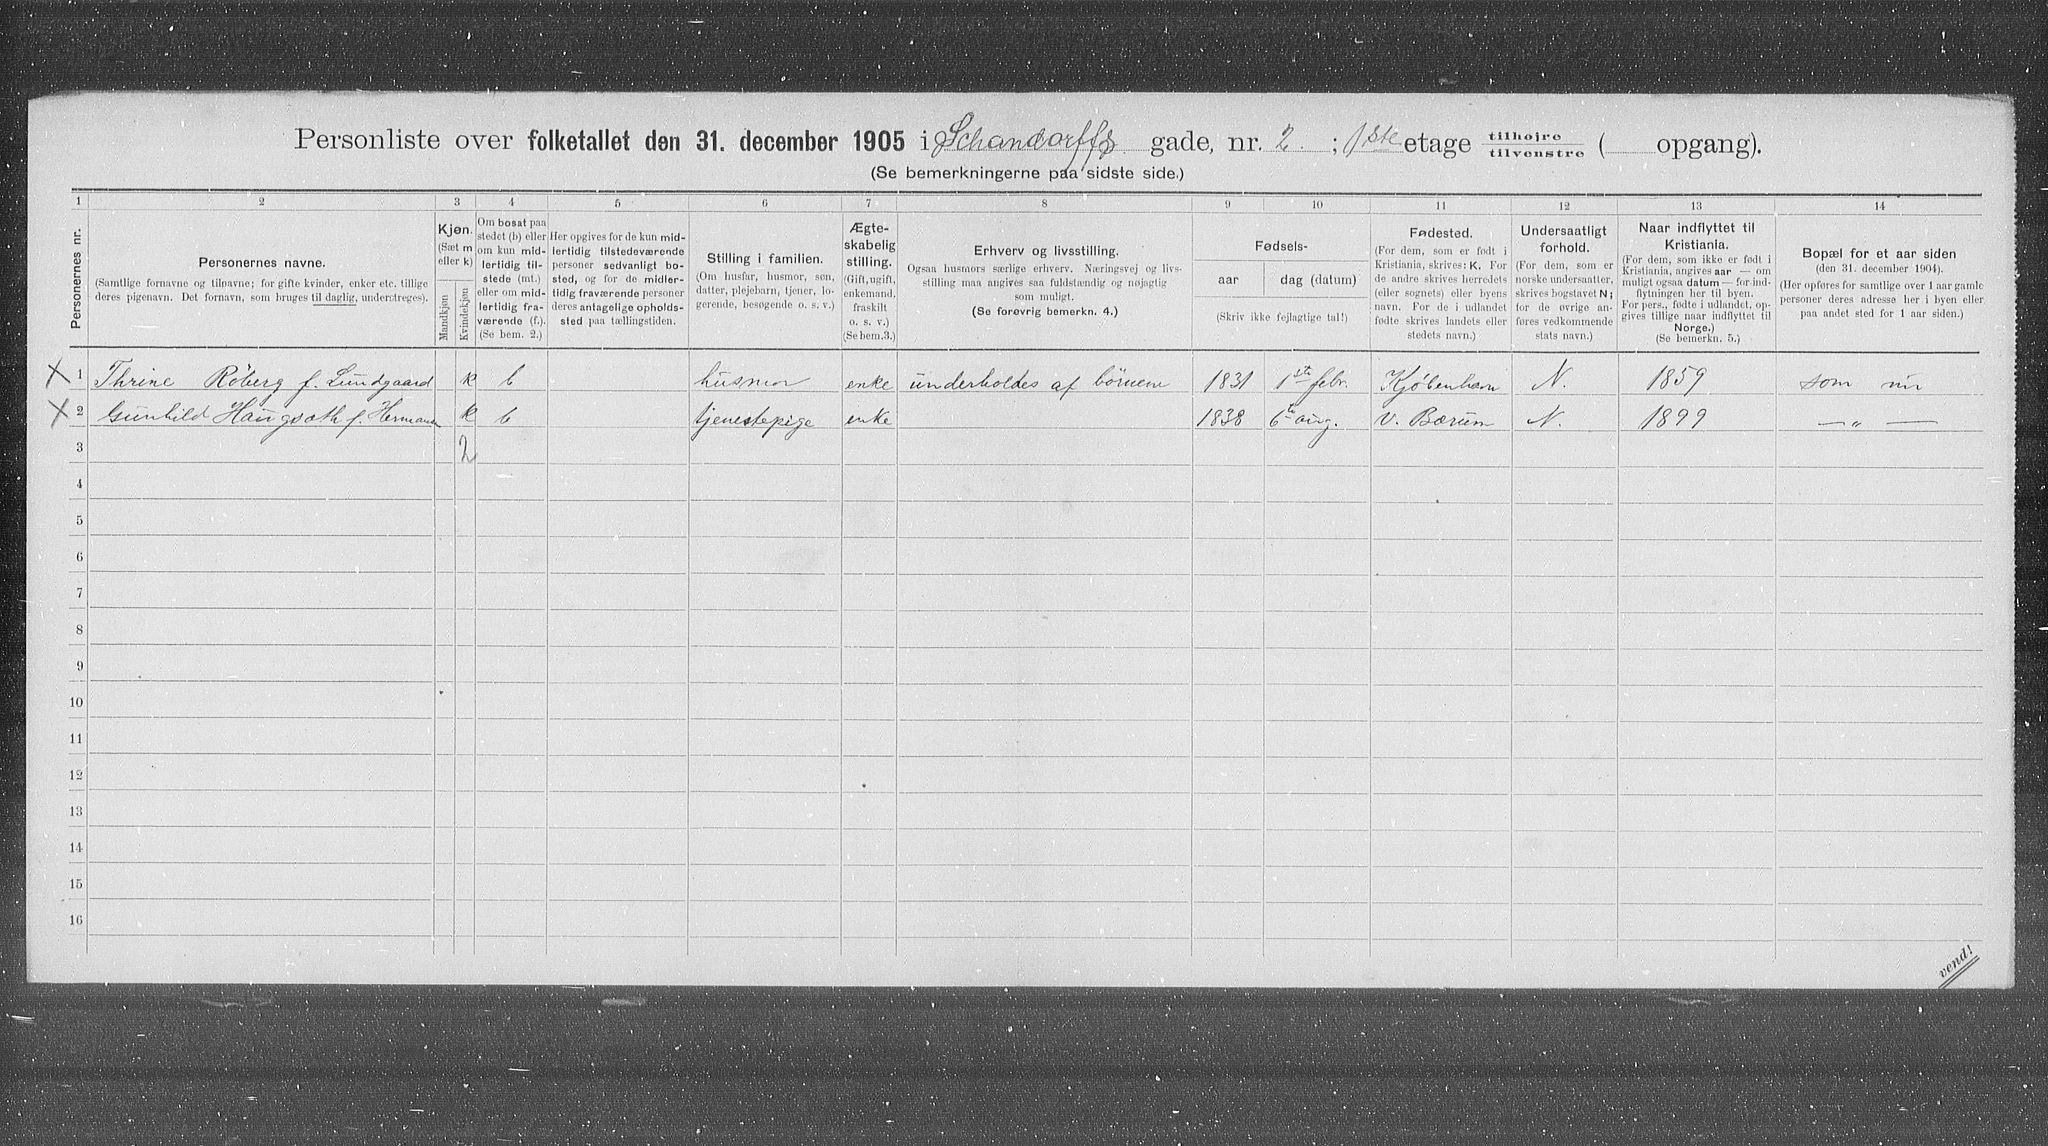 Personliste over folketallet den 31. december 1905 i Schandorffs gade, nr. 2 ; 1ste etage tilhøjre tilvenstre ( opgang).
(Se bemerkningerne paa sidste side.)
1 2 3 4 5 6 7 8 9 10 11 12 13 14
Personernes nr.
Personernes navne.
(Samtlige fornavne og tilnavne; for gifte kvinder, enker etc. tillige
deres pigenavn. Det fornavn, som bruges til daglig, understreges).
Kjøn.
(Sæt m
eller k)
Mandkjøn
Kvindekjøn
Om bosat paa
stedet (b) eller
om kun mid-
lertidig til-
stede (mt.)
eller om mid-
lertidig fra-
værende (f.).
(Se bem. 2.)
Her opgives for de kun mid-
lertidig tilstedeværende
personer sedvanligt bo-
sted, og for de midler-
tidig fraværende personer
deres antagelige opholds-
sted paa tællingstiden.
Stilling i familien.
(Om husfar, husmor, søn,
datter, plejebarn, tjener, lo-
gerende, besøgende o. s. v.)
Ægte-
skabelig
stilling.
(Gift, ugift,
enkemand,
fraskilt
o. s. v.)
(Se bem.3.)
Erhverv og livsstilling.
Ogsaa husmors særlige erhverv. Næringsvej og livs-
stilling maa angives saa fuldstændig og nøjagtig
som muligt.
(Se forøvrig bemerkn. 4.)
Fødsels-
aar dag (datum)
(Skriv ikke fejlagtige tal!)
Fødested.
(For dem, som er født i
Kristiania, skrives: K. For
de andre skrives herredets
(eller sognets) eller byens
navn. For de i udlandet
fødte skrives landets eller
stedets navn.)
Undersaatligt
forhold.
(For dem, som er
norske undersaatter,
skrives bogstavet N;
for de øvrige an-
føres vedkommende
stats navn.)
Naar indflyttet til
Kristiania.
(For dem, som ikke er født i
Kristiania, angives aar — om
muligt ogsaa datum — for ind-
flytningen her til byen.
For pers., fødte i udlandet, op-
gives tillige naar indflyttet til
Norge.)
(Se bemerkn. 5.)
Bopæl for et aar siden
(den 31. december 1904).
(Her opføres for samtlige over 1 aar gamle
personer deres adresse her i byen eller
paa andet sted for 1 aar siden.)
X 1 Thrine Røberg f. Lundgaard k b husmor enke underholdes af børnene 1831 1ste febr. Kjøbenhavn N. 1859 som nu
X 2 Gunhild Haugsøth f. Herman k b tjenestepige enke 1838 6te aug. V. Bærum N. 1899 — „ —
3 2
4
5
6
7
8
9
10
11
12
13
14
15
16
vend!